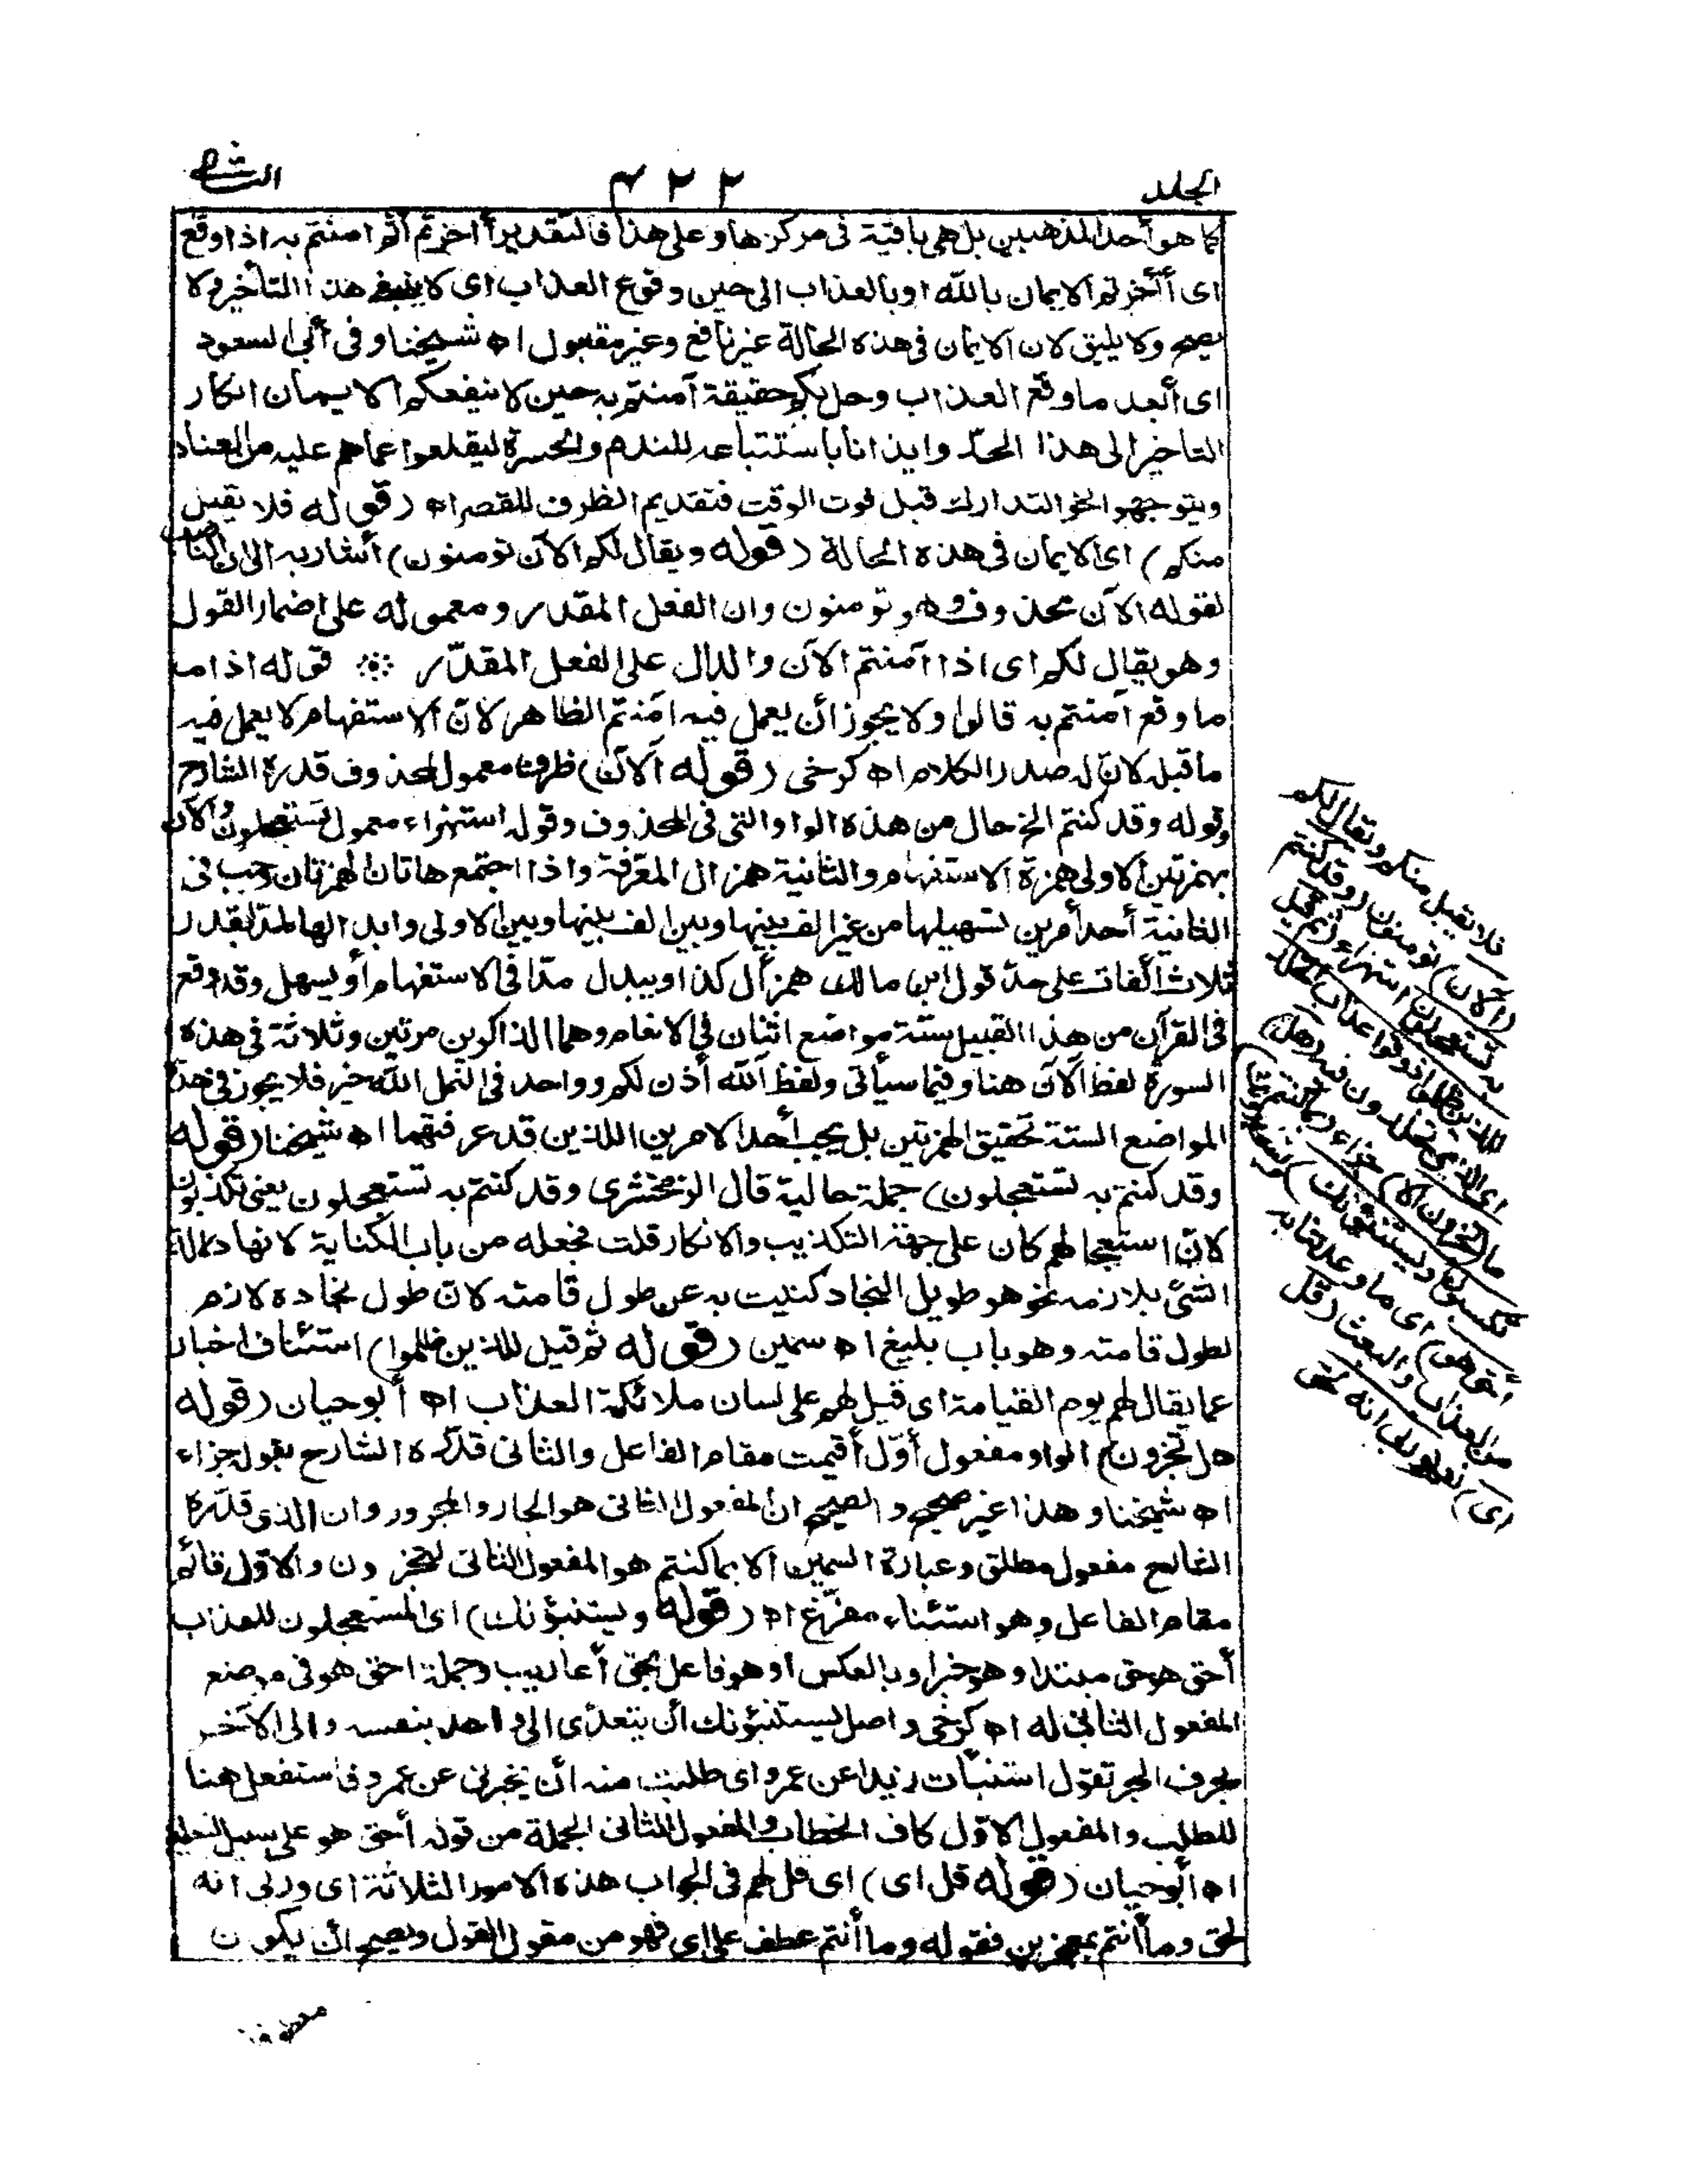 الجلد
٤٢٢
الثانى
كما هو أحد المذهبين بل هى باقية فى مركزها وعلى هذا فالتقدير أأخرتم أثم امنتم به اذا وقع
اى أأخرتم الايمان بالله او بالعذاب الى حين وقوع العذاب اى لا ينبغى هذا التأخير ولا
يصح ولا يليق لان الايمان فى هذه الحالة غير نافع وغير مقبول اه شيخنا وفى أبى السعود
اى أبعد ما وقع العذاب وحل بكم حقيقة آمنتم به حين لا ينفعكم الايمان انكار
التاخير الى هذا الحدّ وايذانا باستتباعه للندم والحسرة ليقلعوا عما هم عليه من العناد
ويتوجهوا نحو التدارك قبل فوت الوقت فتقديم الظرف للقصر اه (قوله فلا يقبل
منكم) اى الايمان فى هذه الحالة (قوله ويقال لكم الآن تومنون) أشار به الى ان الناصب
لقوله الآن محذوف وهو تومنون وان الفعل المقدر ومعموله على اضمار القول
وهو يقال لكم اى اذا آمنتم الآن والدال على الفعل المقدّر قوله اذا ما
ما وقع آمنتم به قالوا ولا يجوز أن يعمل فيه امنتم الظاهر لانّ الاستفهام لا يعمل فيه
ما قبله لانّ له صدر الكلام اه كرخى (قوله آلآن) ظرف معمول لمحذوف قدره الشارح
وقوله وقد كنتم الخ حال من هذه الواو التى فى المحذوف وقوله استهزاء معمول لتستعجلون وآلآن
بهمزتين الاولى همزة الاستفهام والثانية همز ال المعرّفة واذا اجتمع هاتان الهمزتان وجب فى
الثانية أحد أمرين تسهيلها من غير الف بينها وبين الف بينها وبين الاولى وابدالها مدّا بقدر
ثلاث ألفات على حدّ قول ابن مالك همز أل كذا ويبدل مدّا فى الاستفهام أو يسهل وقد وقع
فى القرآن من هذا القبيل ستة مواضع اثنان فى الانعام وهما الذاكرين مرتين وثلاثة فى هذه
السورة لفظ آلآن هنا وفيما سيأتى ولفظ آلله أذن لكم وواحد فى النمل آلله خير فلا يجوز فى هذه
المواضع الستة تحقيق الهمزتين بل يجب أحد الامرين اللذين قد عرفتهما اه شيخنا (قوله
وقد كنتم به تستعجلون) جملة حالية قال الزمخشرى وقد كنتم به تستعجلون يعنى تكذبون
لانّ استعجالهم كان على جهة التكذيب والانكار قلت فجعله من باب الكناية لانها دلالة
الشئ بلازمه نحو هو طويل النجاد كنيت به عن طول قامته لانّ طول نجاده لازم
لطول قامته وهو باب بليغ اه سمين (قوله ثم قيل للذين ظلموا) استئناف اخبار
عما يقال لهم يوم القيامة اى قيل لهم على لسان ملائكة العذاب اه أبو حيان (قوله
هل تجزون) الواو مفعول أوّل أقيمت مقام الفاعل والثانى قدّره الشارح بقوله جزاء
اه شيخنا وهذا غير صحيح والصحيح انّ المفعول الثانى هو الجار والمجرور وان الذى قدّره
الشارح مفعول مطلق وعبارة السمين الا بما كنتم هو المفعول الثانى لتجزون والاوّل قائم
مقام الفاعل وهو استثناء مفرّغ اه (قوله ويستنبؤنك) اى المستعجلون للعذاب
أحق هو حق مبتدا وهو خبر او بالعكس او هو فاعل بحق أعاريب وجملة احق هو فى موضع
المفعول الثانى له اه كرخى واصل يستنبؤنك أن يتعدّى الى واحد بنفسه والى الآخر
بحرف الجر تقول استنبأت زيدا عن عمرو اى طلبت منه أن يخبرنى عن عمرو فاستفعل هنا
للطلب والمفعول الاوّل كاف الخطاب والمفعول الثانى الجملة من قوله أحق هو على سبيل التعليق
اه أبو حيان (قوله قل اى) اى قل لهم فى الجواب هذه الامور الثلاثة اى وربى انه
لحق وما أنتم بمعجزين فقوله وما أنتم عطف على اى فهو من مقول القول ويصح أن يكون
فلا يقبل منكم ويقال لكم
(آلآن) تومنون (وقد كنتم
به تستعجلون) استهزاء (ثم قيل
للذين ظلموا ذوقوا عذاب الخلد)
اى الذى تخلدون فيه (هل)
ما (تجزون الا) جزاء (بما كنتم
تكسبون ويستنبؤنك) يستخبرونك
(أحق هو) اى ما وعدتنا به
من العذاب والبعث (قل
اى) نعم (وربى انه لحق